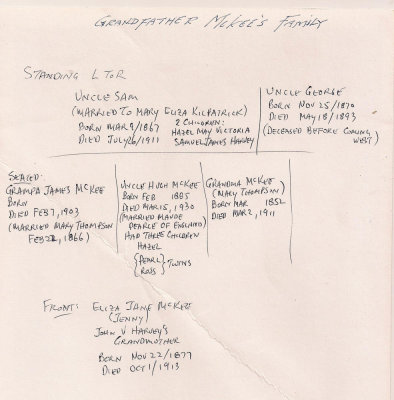 GRANDFATHER McKEE'S FAMILY
STANDING L TO R
UNCLE SAM
(MARRIED TO MARY ELIZA KILPATRICK)
BORN MAR 9/1867
DIED JULY 26/1911
2 CHILDREN:
HAZEL MAY VICTORIA
SAMUEL JAMES HARVEY
UNCLE GEORGE
BORN NOV 25/1870
DIED MAY 18/1893
(DECEASED BEFORE COMING
WEST)
SEATED:
GRAMPA JAMES McKEE
BORN
DIED FEB 7, 1903
(MARRIED MARY THOMPSON
FEB 22, 1866)
UNCLE HUGH McKEE
BORN FEB 1885
DIED MAR 15, 1930
(MARRIED MAUDE
PEARLE OF ENGLAND)
HAD THREE CHILDREN
HAZEL
{PEARL} TWINS
{ROSS}
GRANDMA McKEE
(MARY THOMPSON)
BORN MAR 1852
DIED MAR 2, 1911
FRONT: ELIZA JANE McKEE
(JENNY)
JOHN V HARVEY'S
GRANDMOTHER
BORN NOV 22/1877
DIED OCT 1/1913